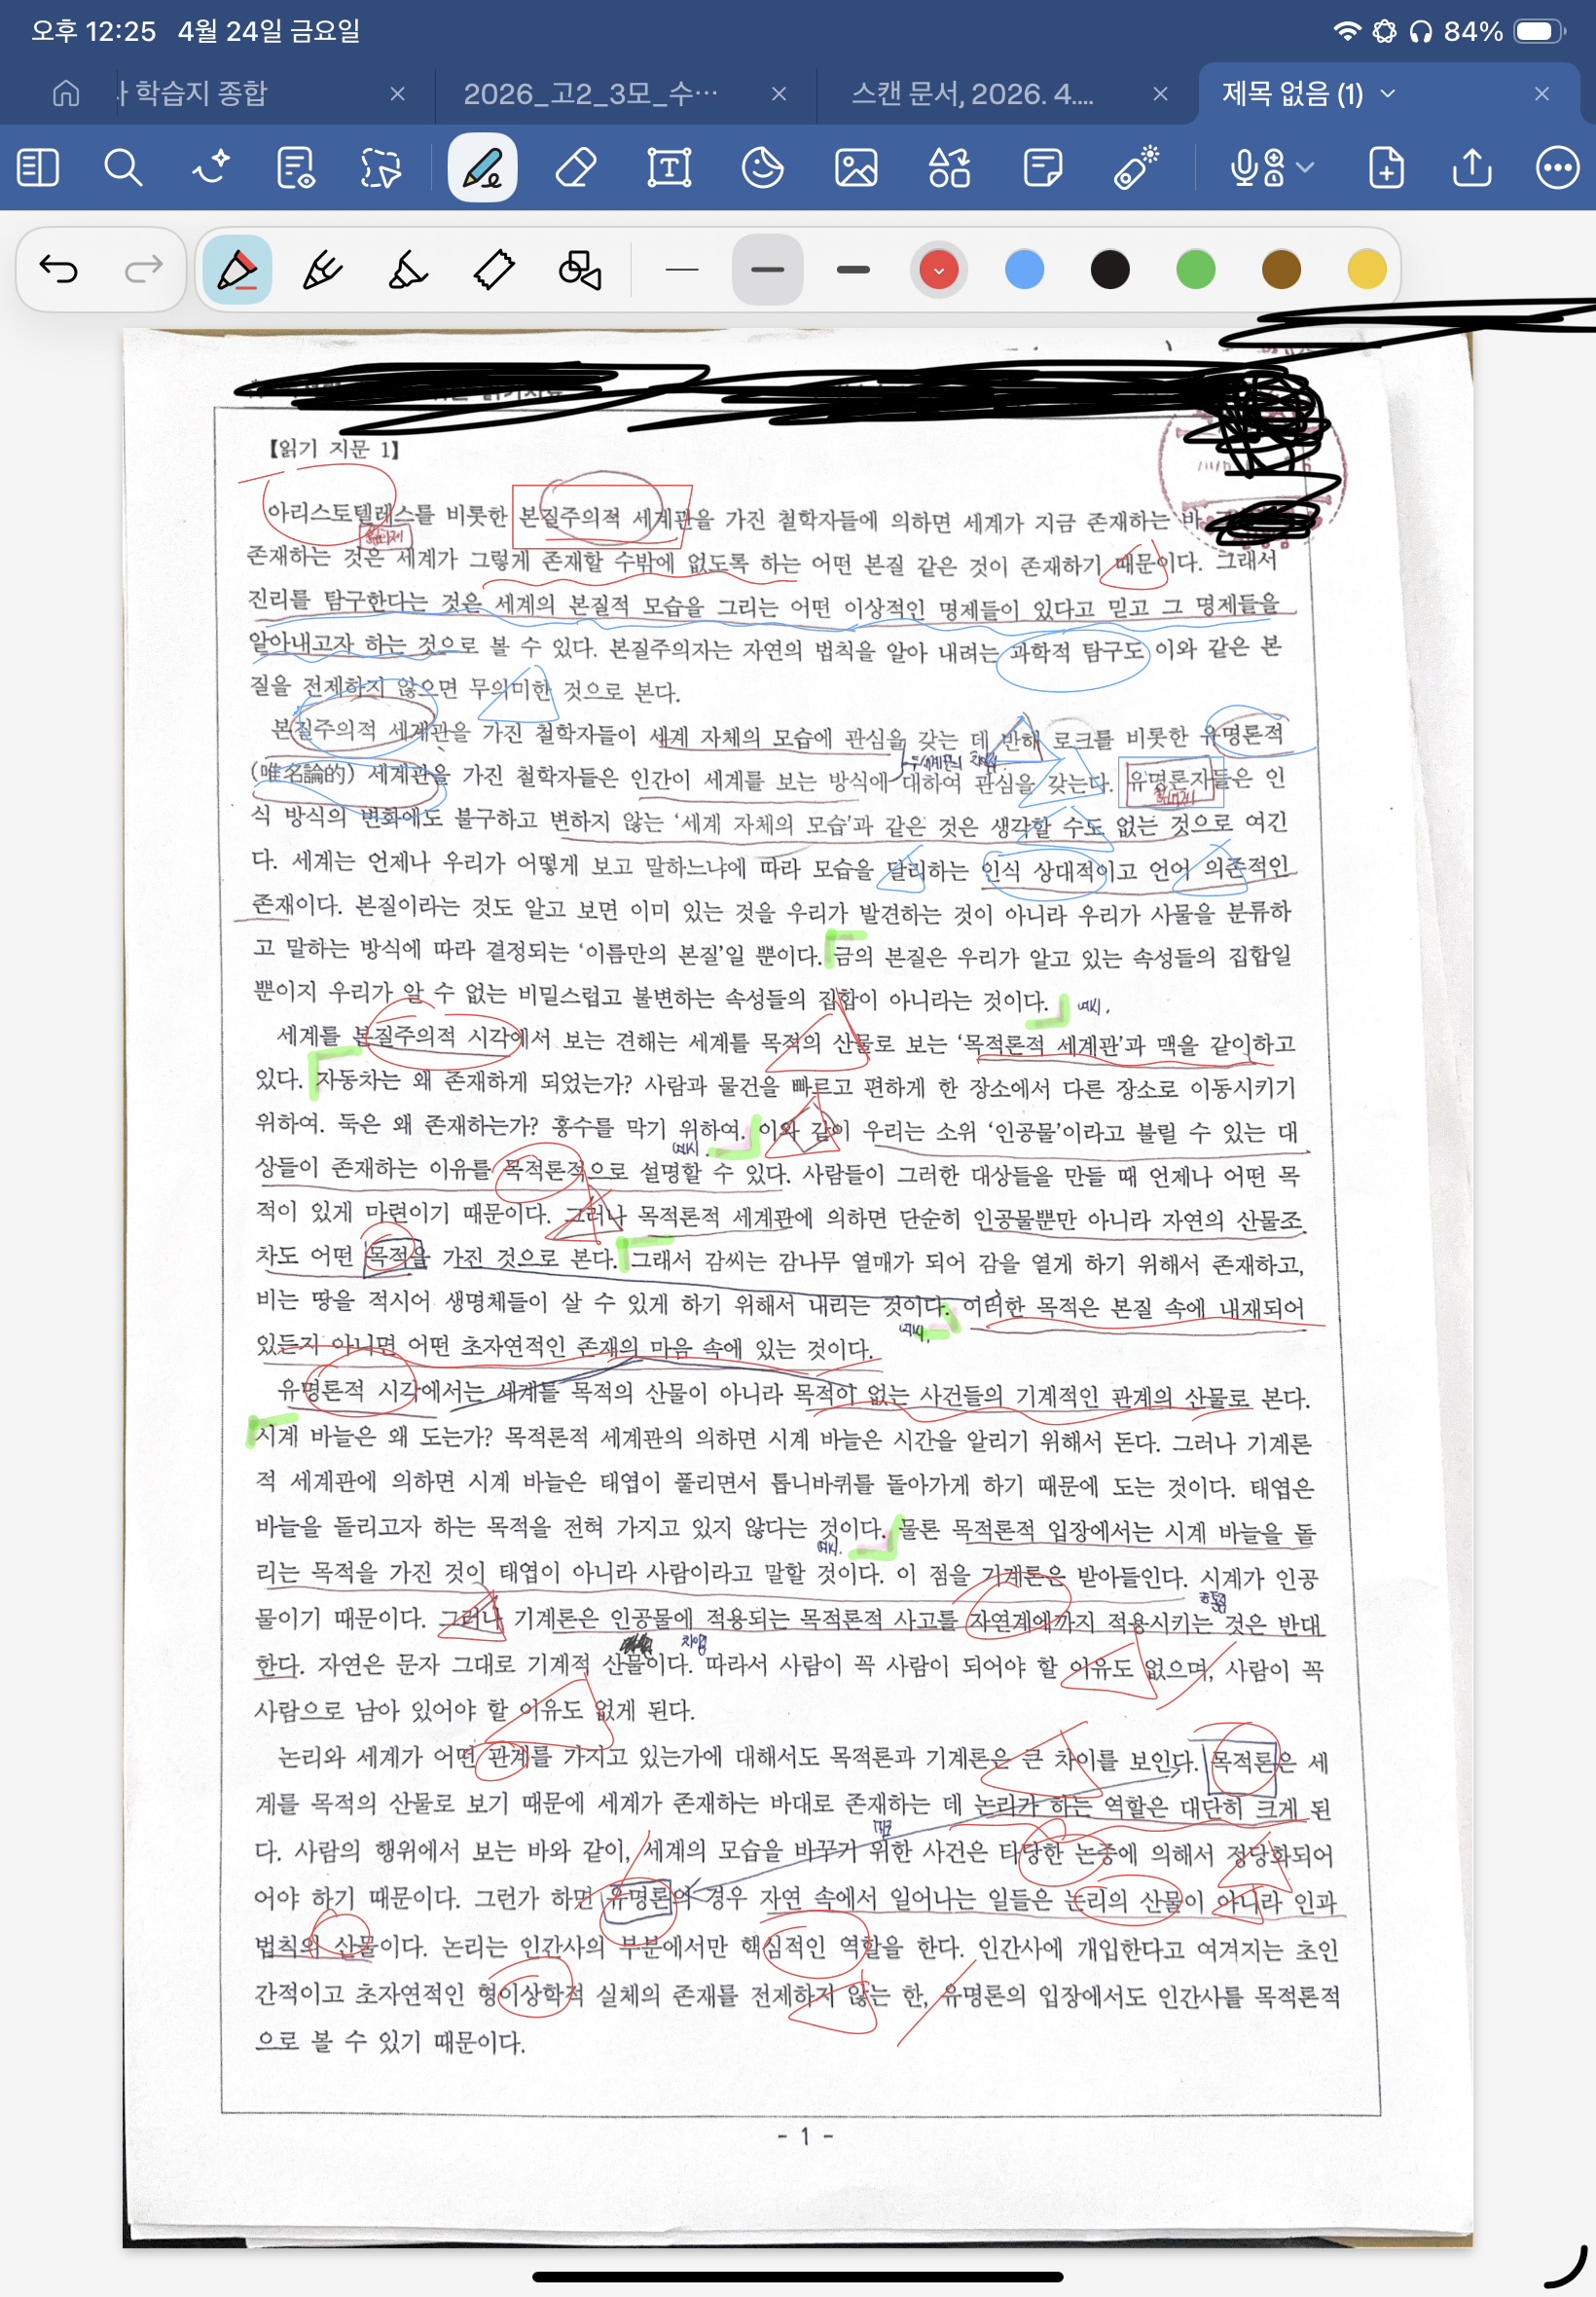 오후 12:25 4월 24일 금요일
84%
학습지 종합
2026_고2_3모_수…
스캔 문서, 2026. 4....
제목 없음 (1)
【읽기 지문 1】
아리스토텔레스를 비롯한 본질주의적 세계관을 가진 철학자들에 의하면 세계가 지금 존재하는 바
존재하는 것은 세계가 그렇게 존재할 수밖에 없도록 하는 어떤 본질 같은 것이 존재하기 때문이다. 그래서
진리를 탐구한다는 것은 세계의 본질적 모습을 그리는 어떤 이상적인 명제들이 있다고 믿고 그 명제들을
알아내고자 하는 것으로 볼 수 있다. 본질주의자는 자연의 법칙을 알아 내려는 과학적 탐구도 이와 같은 본
질을 전제하지 않으면 무의미한 것으로 본다.
본질주의적 세계관을 가진 철학자들이 세계 자체의 모습에 관심을 갖는 데 반해 로크를 비롯한 유명론적
(唯名論的) 세계관을 가진 철학자들은 인간이 세계를 보는 방식에 대하여 관심을 갖는다. 유명론자들은 인
식 방식의 변화에도 불구하고 변하지 않는 ‘세계 자체의 모습’과 같은 것은 생각할 수도 없는 것으로 여긴
다. 세계는 언제나 우리가 어떻게 보고 말하느냐에 따라 모습을 달리하는 인식 상대적이고 언어 의존적인
존재이다. 본질이라는 것도 알고 보면 이미 있는 것을 우리가 발견하는 것이 아니라 우리가 사물을 분류하
고 말하는 방식에 따라 결정되는 ‘이름만의 본질’일 뿐이다. 금의 본질은 우리가 알고 있는 속성들의 집합일
뿐이지 우리가 알 수 없는 비밀스럽고 불변하는 속성들의 집합이 아니라는 것이다. 예시.
세계를 본질주의적 시각에서 보는 견해는 세계를 목적의 산물로 보는 ‘목적론적 세계관’과 맥을 같이하고
있다. 자동차는 왜 존재하게 되었는가? 사람과 물건을 빠르고 편하게 한 장소에서 다른 장소로 이동시키기
위하여. 둑은 왜 존재하는가? 홍수를 막기 위하여. 이와 같이 우리는 소위 ‘인공물’이라고 불릴 수 있는 대
예시.
상들이 존재하는 이유를 목적론적으로 설명할 수 있다. 사람들이 그러한 대상들을 만들 때 언제나 어떤 목
적이 있게 마련이기 때문이다. 그러나 목적론적 세계관에 의하면 단순히 인공물뿐만 아니라 자연의 산물조
차도 어떤 목적을 가진 것으로 본다. 그래서 감씨는 감나무 열매가 되어 감을 열게 하기 위해서 존재하고,
비는 땅을 적시어 생명체들이 살 수 있게 하기 위해서 내리는 것이다. 이러한 목적은 본질 속에 내재되어
예시.
있든지 아니면 어떤 초자연적인 존재의 마음 속에 있는 것이다.
유명론적 시각에서는 세계를 목적의 산물이 아니라 목적이 없는 사건들의 기계적인 관계의 산물로 본다.
시계 바늘은 왜 도는가? 목적론적 세계관의 의하면 시계 바늘은 시간을 알리기 위해서 돈다. 그러나 기계론
적 세계관에 의하면 시계 바늘은 태엽이 풀리면서 톱니바퀴를 돌아가게 하기 때문에 도는 것이다. 태엽은
바늘을 돌리고자 하는 목적을 전혀 가지고 있지 않다는 것이다. 물론 목적론적 입장에서는 시계 바늘을 돌
예시.
리는 목적을 가진 것이 태엽이 아니라 사람이라고 말할 것이다. 이 점을 기계론은 받아들인다. 시계가 인공
공통점
물이기 때문이다. 그러나 기계론은 인공물에 적용되는 목적론적 사고를 자연계에까지 적용시키는 것은 반대
차이점
한다. 자연은 문자 그대로 기계적 산물이다. 따라서 사람이 꼭 사람이 되어야 할 이유도 없으며, 사람이 꼭
사람으로 남아 있어야 할 이유도 없게 된다.
논리와 세계가 어떤 관계를 가지고 있는가에 대해서도 목적론과 기계론은 큰 차이를 보인다. 목적론은 세
계를 목적의 산물로 보기 때문에 세계가 존재하는 바대로 존재하는 데 논리가 하는 역할은 대단히 크게 된
다. 사람의 행위에서 보는 바와 같이, 세계의 모습을 바꾸기 위한 사건은 타당한 논증에 의해서 정당화되어
어야 하기 때문이다. 그런가 하면 유명론의 경우 자연 속에서 일어나는 일들은 논리의 산물이 아니라 인과
법칙의 산물이다. 논리는 인간사의 부분에서만 핵심적인 역할을 한다. 인간사에 개입한다고 여겨지는 초인
간적이고 초자연적인 형이상학적 실체의 존재를 전제하지 않는 한, 유명론의 입장에서도 인간사를 목적론적
으로 볼 수 있기 때문이다.
- 1 -